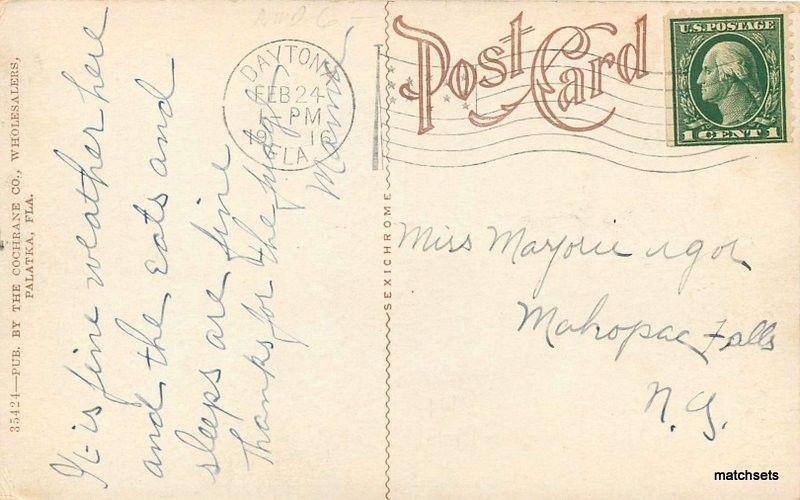 Post Card
U.S. POSTAGE
1 CENT 1
DAYTONA
FEB 24
5 PM
1916
FLA.
It is fine weather here
and the eats and
sleeps are fine
Thanks for the
35424—PUB. BY THE COCHRANE CO., WHOLESALERS,
PALATKA, FLA.
SEXICHROME
Miss Marjorie Agor
Mahopac Falls
N.Y.
matchsets